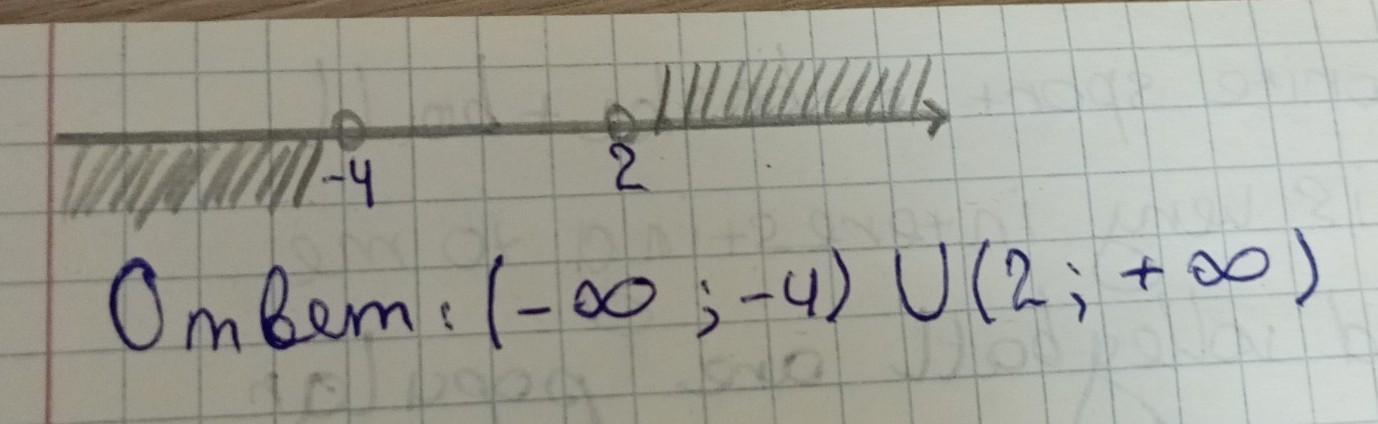 -4 2
Ответ: (-∞; -4) ∪ (2; +∞)